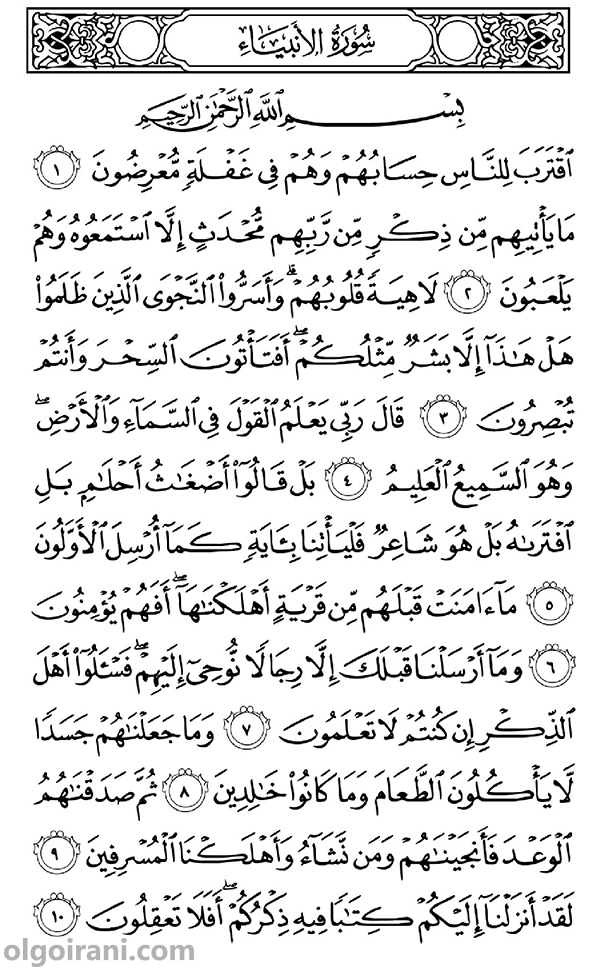 سُورَةُ الأَنبِيَاءِ
بِسْمِ ٱللَّهِ ٱلرَّحْمَٰنِ ٱلرَّحِيمِ
ٱقْتَرَبَ لِلنَّاسِ حِسَابُهُمْ وَهُمْ فِي غَفْلَةٍ مُّعْرِضُونَ ١
مَا يَأْتِيهِم مِّن ذِكْرٍ مِّن رَّبِّهِم مُّحْدَثٍ إِلَّا ٱسْتَمَعُوهُ وَهُمْ
يَلْعَبُونَ ٢ لَاهِيَةً قُلُوبُهُمْ ۗ وَأَسَرُّوا۟ ٱلنَّجْوَى ٱلَّذِينَ ظَلَمُوا۟
هَلْ هَٰذَآ إِلَّا بَشَرٌ مِّثْلُكُمْ ۖ أَفَتَأْتُونَ ٱلسِّحْرَ وَأَنتُمْ
تُبْصِرُونَ ٣ قَالَ رَبِّي يَعْلَمُ ٱلْقَوْلَ فِي ٱلسَّمَآءِ وَٱلْأَرْضِ ۖ
وَهُوَ ٱلسَّمِيعُ ٱلْعَلِيمُ ٤ بَلْ قَالُوٓا۟ أَضْغَٰثُ أَحْلَٰمٍۭ بَلِ
ٱفْتَرَىٰهُ بَلْ هُوَ شَاعِرٌ فَلْيَأْتِنَا بِـَٔايَةٍ كَمَآ أُرْسِلَ ٱلْأَوَّلُونَ
٥ مَآ ءَامَنَتْ قَبْلَهُم مِّن قَرْيَةٍ أَهْلَكْنَٰهَآ ۖ أَفَهُمْ يُؤْمِنُونَ
٦ وَمَآ أَرْسَلْنَا قَبْلَكَ إِلَّا رِجَالًا نُّوحِيٓ إِلَيْهِمْ ۖ فَسْـَٔلُوٓا۟ أَهْلَ
ٱلذِّكْرِ إِن كُنتُمْ لَا تَعْلَمُونَ ٧ وَمَا جَعَلْنَٰهُمْ جَسَدًا
لَّا يَأْكُلُونَ ٱلطَّعَامَ وَمَا كَانُوا۟ خَٰلِدِينَ ٨ ثُمَّ صَدَقْنَٰهُمُ
ٱلْوَعْدَ فَأَنجَيْنَٰهُمْ وَمَن نَّشَآءُ وَأَهْلَكْنَا ٱلْمُسْرِفِينَ ٩
لَقَدْ أَنزَلْنَآ إِلَيْكُمْ كِتَٰبًا فِيهِ ذِكْرُكُمْ ۖ أَفَلَا تَعْقِلُونَ ١٠
olgoirani.com